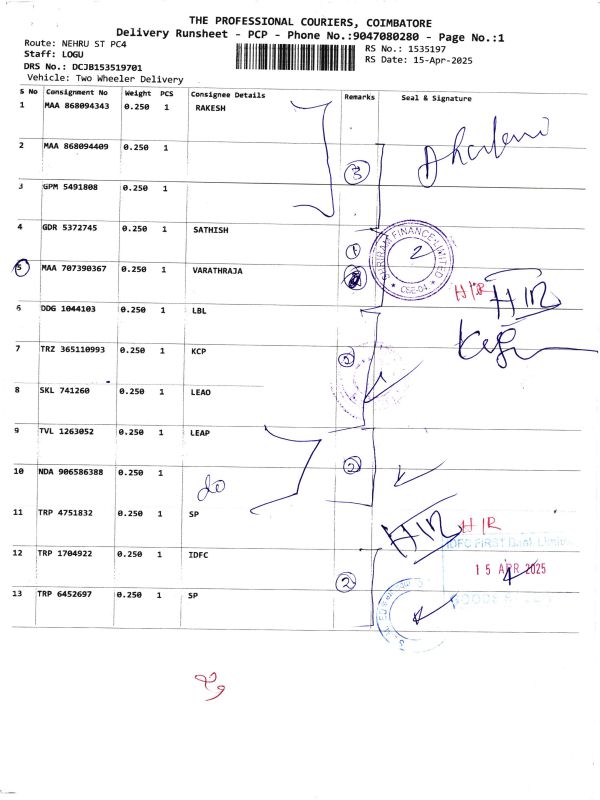 THE PROFESSIONAL COURIERS, COIMBATORE
Delivery Runsheet - PCP - Phone No.:9047080280 - Page No.:1
Route: NEHRU ST PC4
RS No.: 1535197
Staff: LOGU
RS Date: 15-Apr-2025
DRS No.: DCJB153519701
Vehicle: Two Wheeler Delivery
S No Consignment No Weight PCS Consignee Details Remarks Seal & Signature
1 MAA 868094343 0.250 1 RAKESH
2 MAA 868094409 0.250 1
3
3 GPM 5491808 0.250 1
4 GDR 5372745 0.250 1 SATHISH
1
SHRIRAM FINANCE LIMITED
2
CBE-04
5 MAA 707390367 0.250 1 VARATHRAJA
H/R
H/R
6 DDG 1044103 0.250 1 LBL
7 TRZ 365110993 0.250 1 KCP
2
8 SKL 741260 0.250 1 LEAO
9 TVL 1263052 0.250 1 LEAP
2
10 NDA 906586388 0.250 1
do
11 TRP 4751832 0.250 1 SP
H/R
H/R
IDFC FIRST Bank Limited
12 TRP 1704922 0.250 1 IDFC
15 APR 2025
2
13 TRP 6452697 0.250 1 SP